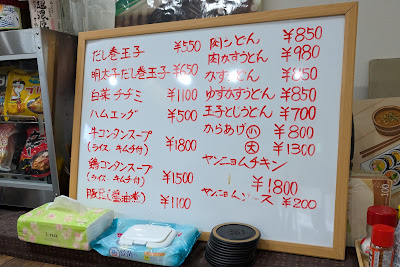 だし巻玉子 ¥550
明太子だし巻玉子 ¥650
白菜チヂミ ¥1100
ハムエッグ ¥500
牛コンタンスープ
(ライス キムチ付) ¥1800
鶏コンタンスープ
(ライス キムチ付) ¥1500
¥1100
肉うどん ¥850
肉かすうどん ¥980
かすうどん ¥850
ゆずかすうどん ¥850
玉子とじうどん ¥700
からあげ 小 ¥800
大 ¥1300
ヤンニョムチキン
¥1800
ヤンニョムソース ¥200